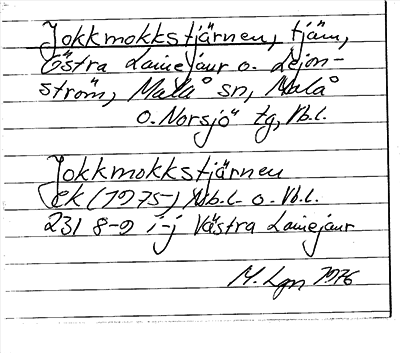 Jokkmokkstjärnen, tjärn,
Östra Lainejaur o. Lejon-
ström, Malå sn, Malå
o. Norsjö tg, Vb.l.
Jokkmokkstjärnen
Ek (1975) Nb.l. o. Vb.l.
231 8-9 i-j Västra Lainejaur
M. Lgn 1976